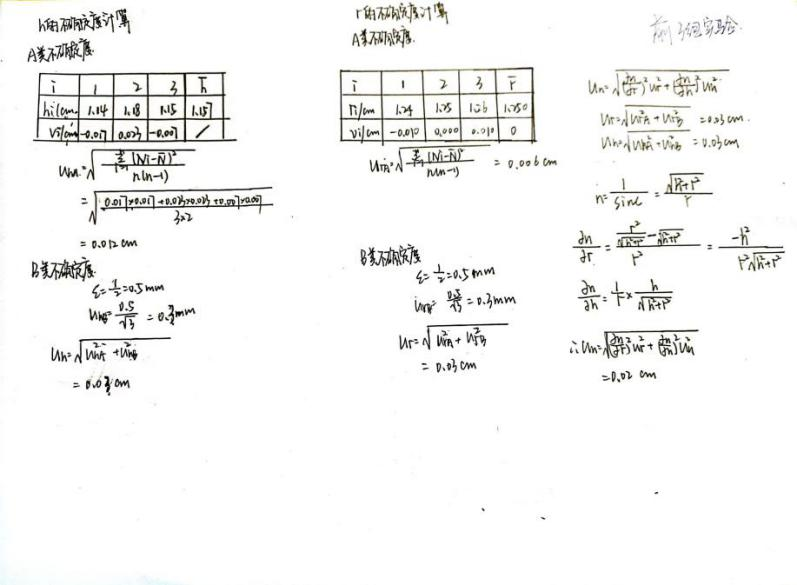 h的不确定度计算
A类不确定度
i 1 2 3 h̄
hi/cm 1.14 1.18 1.15 1.157
vi/cm -0.017 0.023 -0.007 /
= √(0.017×0.017+0.023×0.023+0.007×0.007 / 3×2)
= 0.012 cm
B类不确定度
ε=1/2=0.5mm
uhB=0.5/√3 = 0.3mm
uh=√(u²hA + u²hB)
= 0.03 cm
r的不确定度计算
A类不确定度
i 1 2 3 r̄
ri/cm 1.24 1.25 1.26 1.250
vi/cm -0.010 0.000 0.010 0
= 0.006 cm
B类不确定度
ε=1/2=0.5mm
urB=0.5/√3=0.3mm
ur=√(u²rA + u²rB)
= 0.03 cm
前3组实验
un=√((∂n/∂r)²u²r+(∂n/∂h)²u²h)
ur=√(u²rA+u²rB) =0.03cm
uh=√(u²hA+u²hB) =0.03cm
n=1/sin = √(h²+r²)/r
∂n/∂r = (r²/√(h²+r²) - √(h²+r²))/r² = -h²/(r²√(h²+r²))
∂n/∂h = 1/r × h/√(h²+r²)
∴un=√((∂n/∂r)²u²r+(∂n/∂h)²u²h)
=0.02 cm